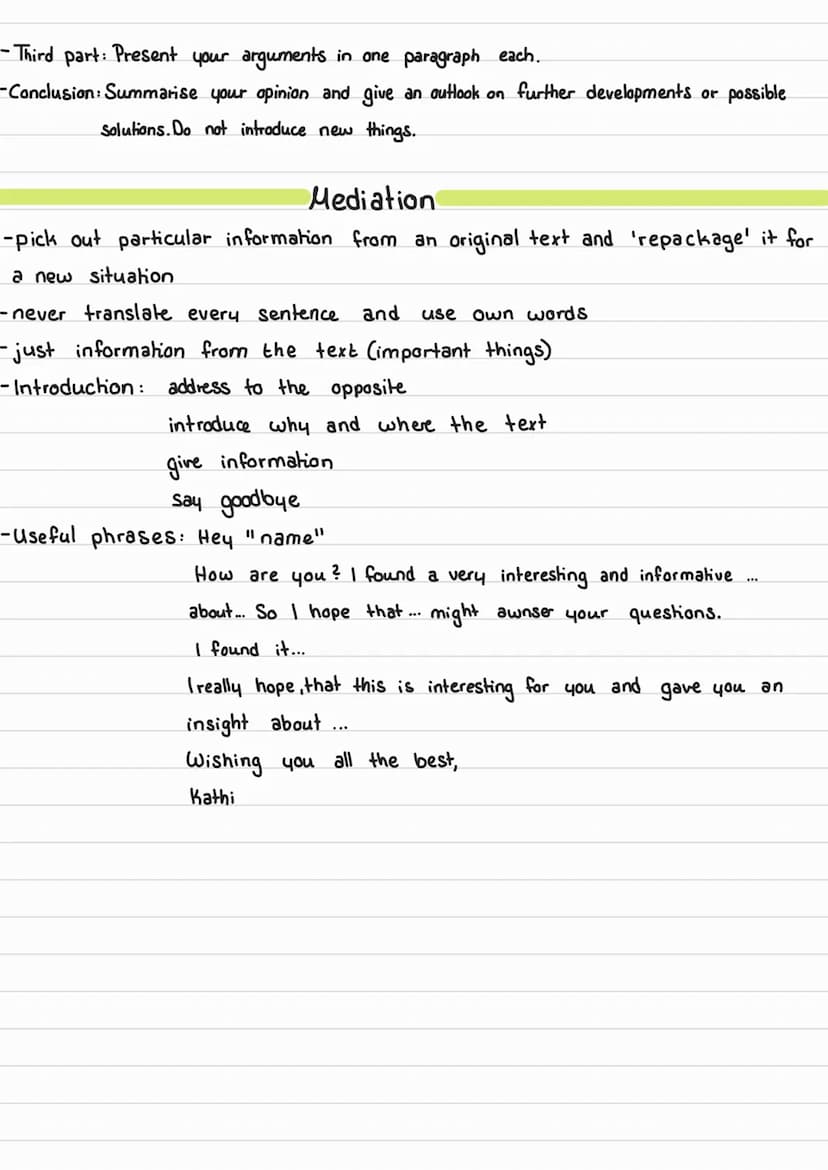 - Third part: Present your arguments in one paragraph each.
- Conclusion: Summarise your opinion and give an outlook on further developments or possible
solutions. Do not introduce new things.
Mediation
- pick out particular information from an original text and 'repackage' it for
a new situation
- never translate every sentence and use own words
- just information from the text (important things)
- Introduction: address to the opposite
introduce why and where the text
give information
say goodbye
- Useful phrases: Hey "name"
How are you? I found a very interesting and informative ...
about... So I hope that ... might awnser your questions.
I found it...
I really hope, that this is interesting for you and gave you an
insight about ...
Wishing you all the best,
Kathi